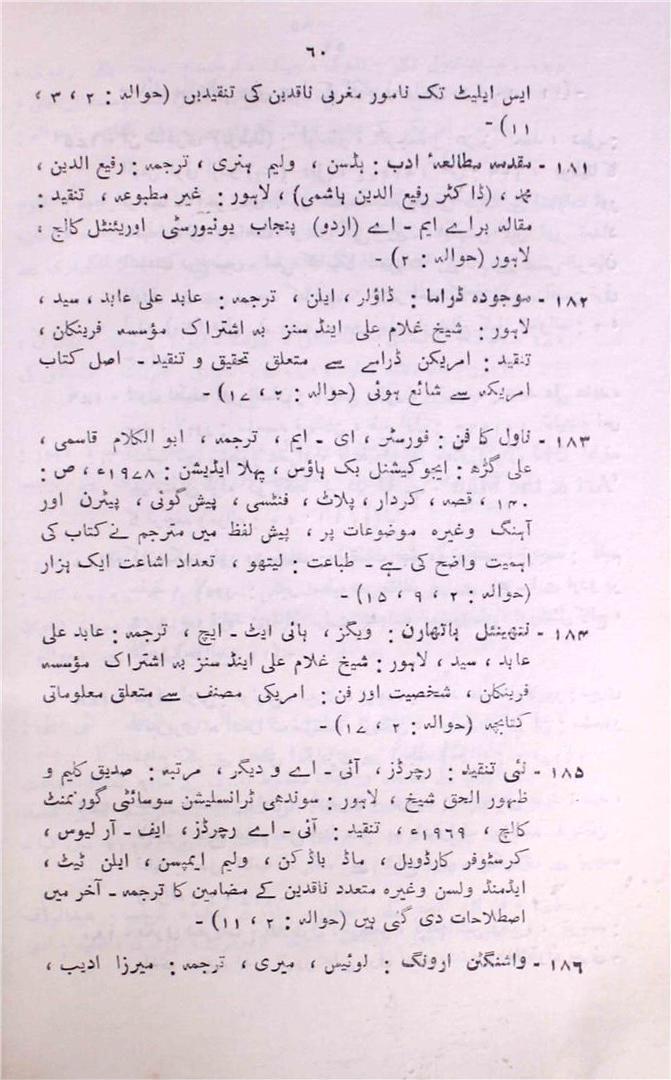 ۶۰
ایس ایلیٹ تک نامور مغربی ناقدین کی تنقیدیں (حوالہ : ۲ ، ۳ ،
۱۱) -
۱۸۱ - مقدمہ مطالعہٴ ادب : ہڈسن ، ولیم ہنری ، ترجمہ : رفیع الدین ،
محمد ، (ڈاکٹر رفیع الدین ہاشمی) ، لاہور : غیر مطبوعہ ، تنقید :
مقالہ برائے ایم - اے (اردو) پنجاب یونیورسٹی اوریئنٹل کالج ،
لاہور (حوالہ : ۲) -
۱۸۲ - موجودہ ڈراما : ڈاؤلر ، ایلن ، ترجمہ : عابد علی عابد ، سید ،
لاہور : شیخ غلام علی اینڈ سنز بہ اشتراک مؤسسہ فرینکلن ،
تنقید : امریکن ڈرامے سے متعلق تحقیق و تنقید - اصل کتاب
امریکہ سے شائع ہوئی (حوالہ : ۲ ، ۱۷) -
۱۸۳ - ناول کا فن : فورسٹر ، ای - ایم ، ترجمہ ، ابو الکلام قاسمی ،
علی گڑھ : ایجوکیشنل بک ہاؤس ، پہلا ایڈیشن : ۱۹۷۸ء ، ص :
۱۴۰ ، قصہ ، کردار ، پلاٹ ، فنٹسی ، پیش گوئی ، پیٹرن اور
آہنگ وغیرہ موضوعات پر ، پیش لفظ میں مترجم نے کتاب کی
اہمیت واضح کی ہے - طباعت : لیتھو ، تعداد اشاعت ایک ہزار
(حوالہ : ۲ ، ۹ ، ۱۵) -
۱۸۴ - نتھینئل ہاتھارن : ویگز ، ہائی ایٹ - ایچ ، ترجمہ : عابد علی
عابد ، سید ، لاہور : شیخ غلام علی اینڈ سنز بہ اشتراک مؤسسہ
فرینکلن ، شخصیت اور فن : امریکی مصنف سے متعلق معلوماتی
کتابچہ (حوالہ : ۲ ، ۱۷) -
۱۸۵ - نئی تنقید : رچرڈز ، آئی - اے و دیگر ، مرتبہ : صدیق کلیم و
ظہور الحق شیخ ، لاہور : سوندھی ٹرانسلیشن سوسائٹی گورنمنٹ
کالج ، ۱۹۶۹ء ، تنقید : آئی - اے رچرڈز ، ایف - آر لیوس ،
کرسٹوفر کارڈویل ، ماڈ باڈکن ، ولیم ایمپسن ، ایلن ٹیٹ ،
ایڈمنڈ ولسن وغیرہ متعدد ناقدین کے مضامین کا ترجمہ - آخر میں
اصطلاحات دی گئی ہیں (حوالہ : ۲ ، ۱۱) -
۱۸۶ - واشنگٹن ارونگ : لوئیس ، میری ، ترجمہ : میرزا ادیب ،